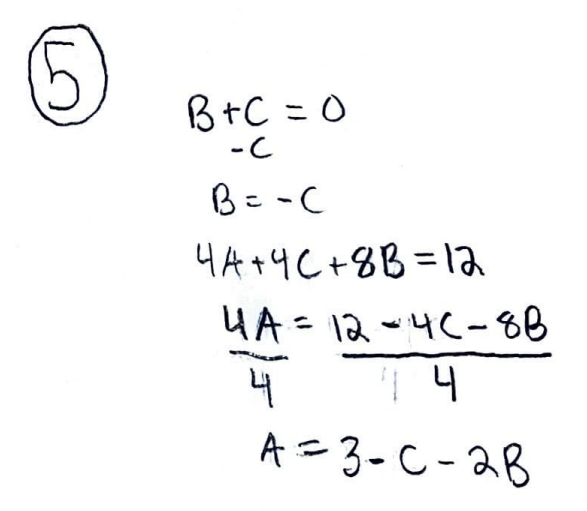 5
B+C = 0
-C
B = -C
4A+4C+8B=12
4A = 12-4C-8B
4 4
A = 3-C-2B